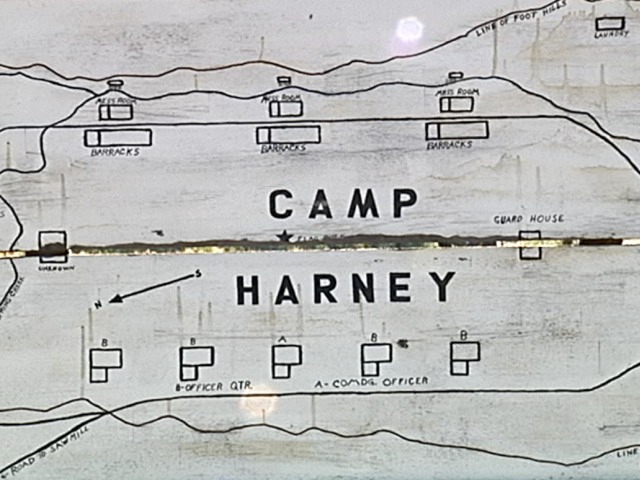 LINE OF FOOT HILLS
LAUNDRY
MESS ROOM
MESS ROOM
MESS ROOM
BARRACKS
BARRACKS
BARRACKS
CAMP
GUARD HOUSE
UNKNOWN
N
S
HARNEY
B
B
A
B
B
B-OFFICER QTR.
A-COMDG. OFFICER
ROAD TO SAWMILL
LINE